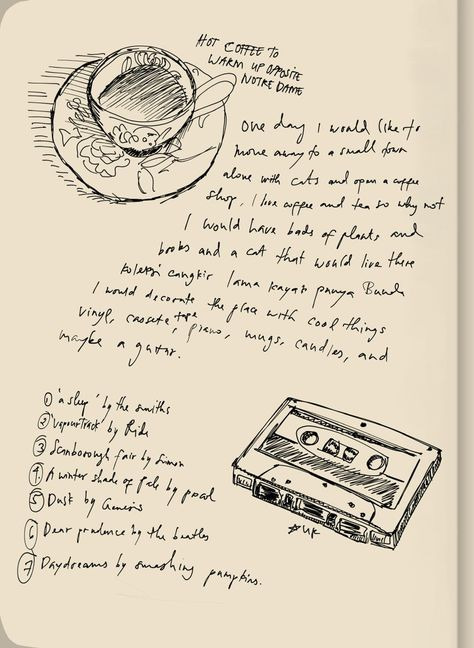 HOT COFFEE TO
WARM UP OPPOSITE
NOTRE DAME
One day I would like to
move away to a small town
alone with cats and open a coffee
shop, I love coffee and tea so why not
I would have bads of plants and
books and a cat that would live there
koleksi cangkir lama kayak punya Bunda
I would decorate the place with cool things
vinyl, cassete tape, piano, mugs, candles, and
maybe a guitar.
① 'asleep' by the smiths
② 'vapour Track' by Ride
③ Scarborough fair by Simon
4. A winter shade of Pale by procol
⑤ Dusk by Genesis
⑥ Dear prudence by the beatles
⑦ Daydreams by smashing pumpkins.